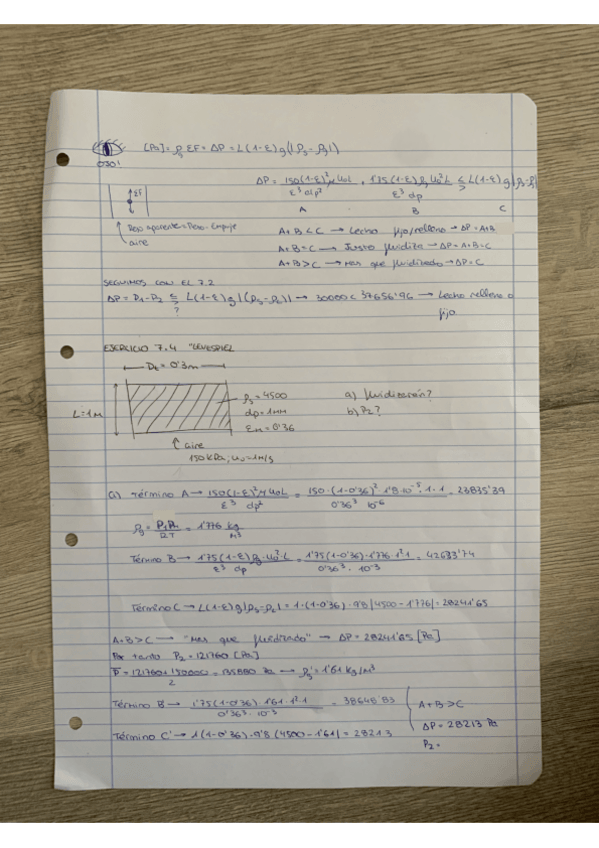 [Pa] = EF = ΔP = L(1-ε)g|(ρs-ρg)|
OJO!
ΔP = 150(1-ε)²μ u₀L / ε³ dp² + 1'75(1-ε)ρg u₀² L / ε³ dp ≤ L(1-ε)g|ρs-ρg|
↑EF
A B C
Peso aparente = Peso - Empuje
aire
A+B < C → Lecho fijo/relleno → ΔP = A+B
A+B = C → Justo fluidiza → ΔP = A+B = C
A+B > C → Mas que fluidizado → ΔP = C
SEGUIMOS CON EL 7.2
ΔP = P1-P2 ≤ L(1-ε)g|(ρs-ρg)| → 30000 < 37656'96 → Lecho relleno o
?
fijo
EJERCICIO 7.4 "LEVESPIEL
Dt = 0'3m
ρs = 4500
dp = 1mm
εm = 0'36
a) fluidización?
b) P2?
L = 1m
↑ aire
150kPa; u₀ = 1m/s
a) Término A → 150(1-ε)² μ u₀L / ε³ dp² = 150·(1-0'36)² 1'8·10⁻⁵·1·1 / 0'36³ 10⁻⁶ = 23835'39
ρg = P1 PM / RT = 1'776 kg/m³
Término B → 1'75(1-ε)ρg·u₀²·L / ε³ dp = 1'75(1-0'36)·1'776·1²1 / 0'36³·10⁻³ = 42633'74
Término C → L(1-ε)g|ρs-ρg| = 1·(1-0'36)·9'8|4500-1'776| = 28241'65
A+B > C → "Mas que fluidizado" → ΔP = 28241'65 [Pa]
tanto P2 = 121760 [Pa]
P̅ = 121760+150000 / 2 = 135880 Pa → ρg' = 1'61 kg/m³
Término B → 1'75(1-0'36)·1'61·1²1 / 0'36³·10⁻³ = 38648'83
A+B > C
ΔP = 28213 Pa
Término C' → 1(1-0'36)·9'8(4500-1'61| = 28213
P2 =